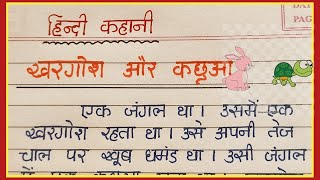 DATE
PAGE
हिन्दी कहानी
खरगोश और कछुआ
एक जंगल था। उसमें एक
खरगोश रहता था। उसे अपनी तेज
चाल पर खूब घमंड था। उसी जंगल
में एक